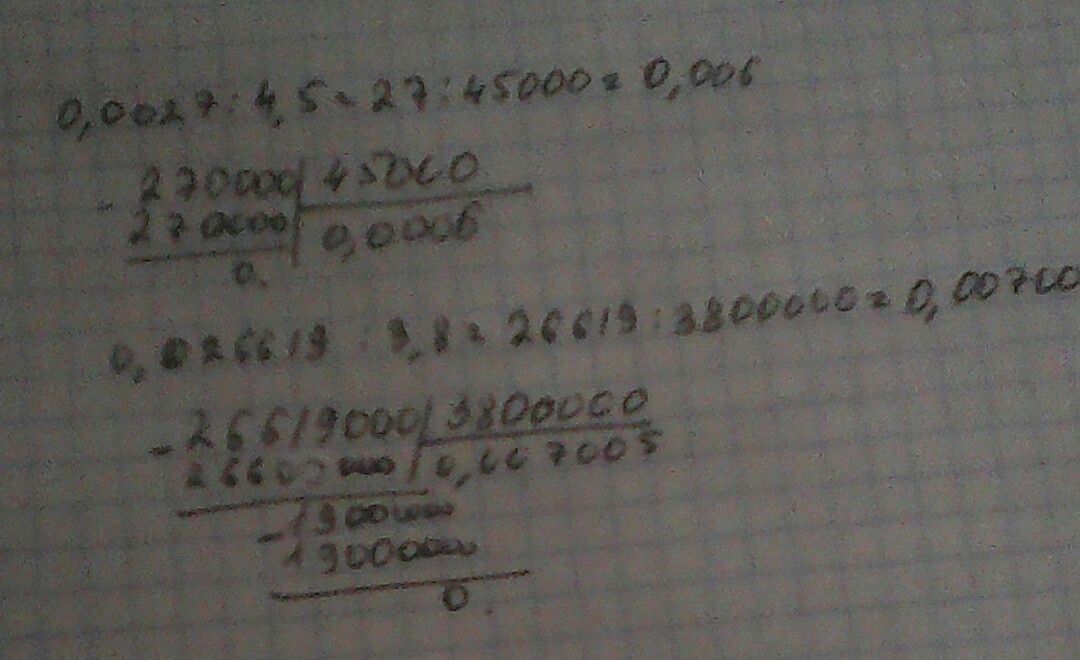 0,0027:4,5=27:45000=0,006
270000 45000
270000 0,0006
0.
0,026619 : 3,8=26619:3800000=0,00700
26619000 3800000
0,007005
-1900000
1900000
0.